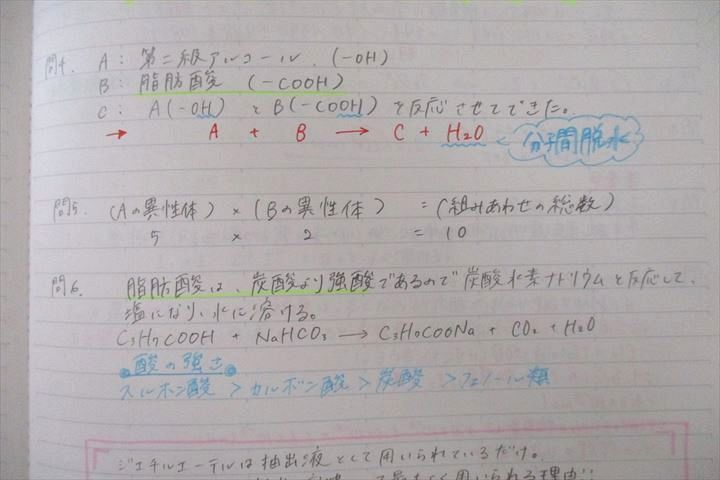 問4. A: 第二級アルコール. (-OH)
B: 脂肪酸 (-COOH)
C: A(-OH) と B(-COOH) を反応させてできた。
→ A + B → C + H₂O 分子間脱水
問5. (Aの異性体) × (Bの異性体) = (組みあわせの総数)
5 × 2 = 10
問6. 脂肪酸は、炭酸より強酸であるので炭酸水素ナトリウムと反応して、
塩になり、水に溶ける。
C₃H₇COOH + NaHCO₃ → C₃H₇COONa + CO₂ + H₂O
酸の強さ
スルホン酸 > カルボン酸 > 炭酸 > フェノール類
ジエチルエーテルは抽出液として用いられているだけ。
用いられる理由!!